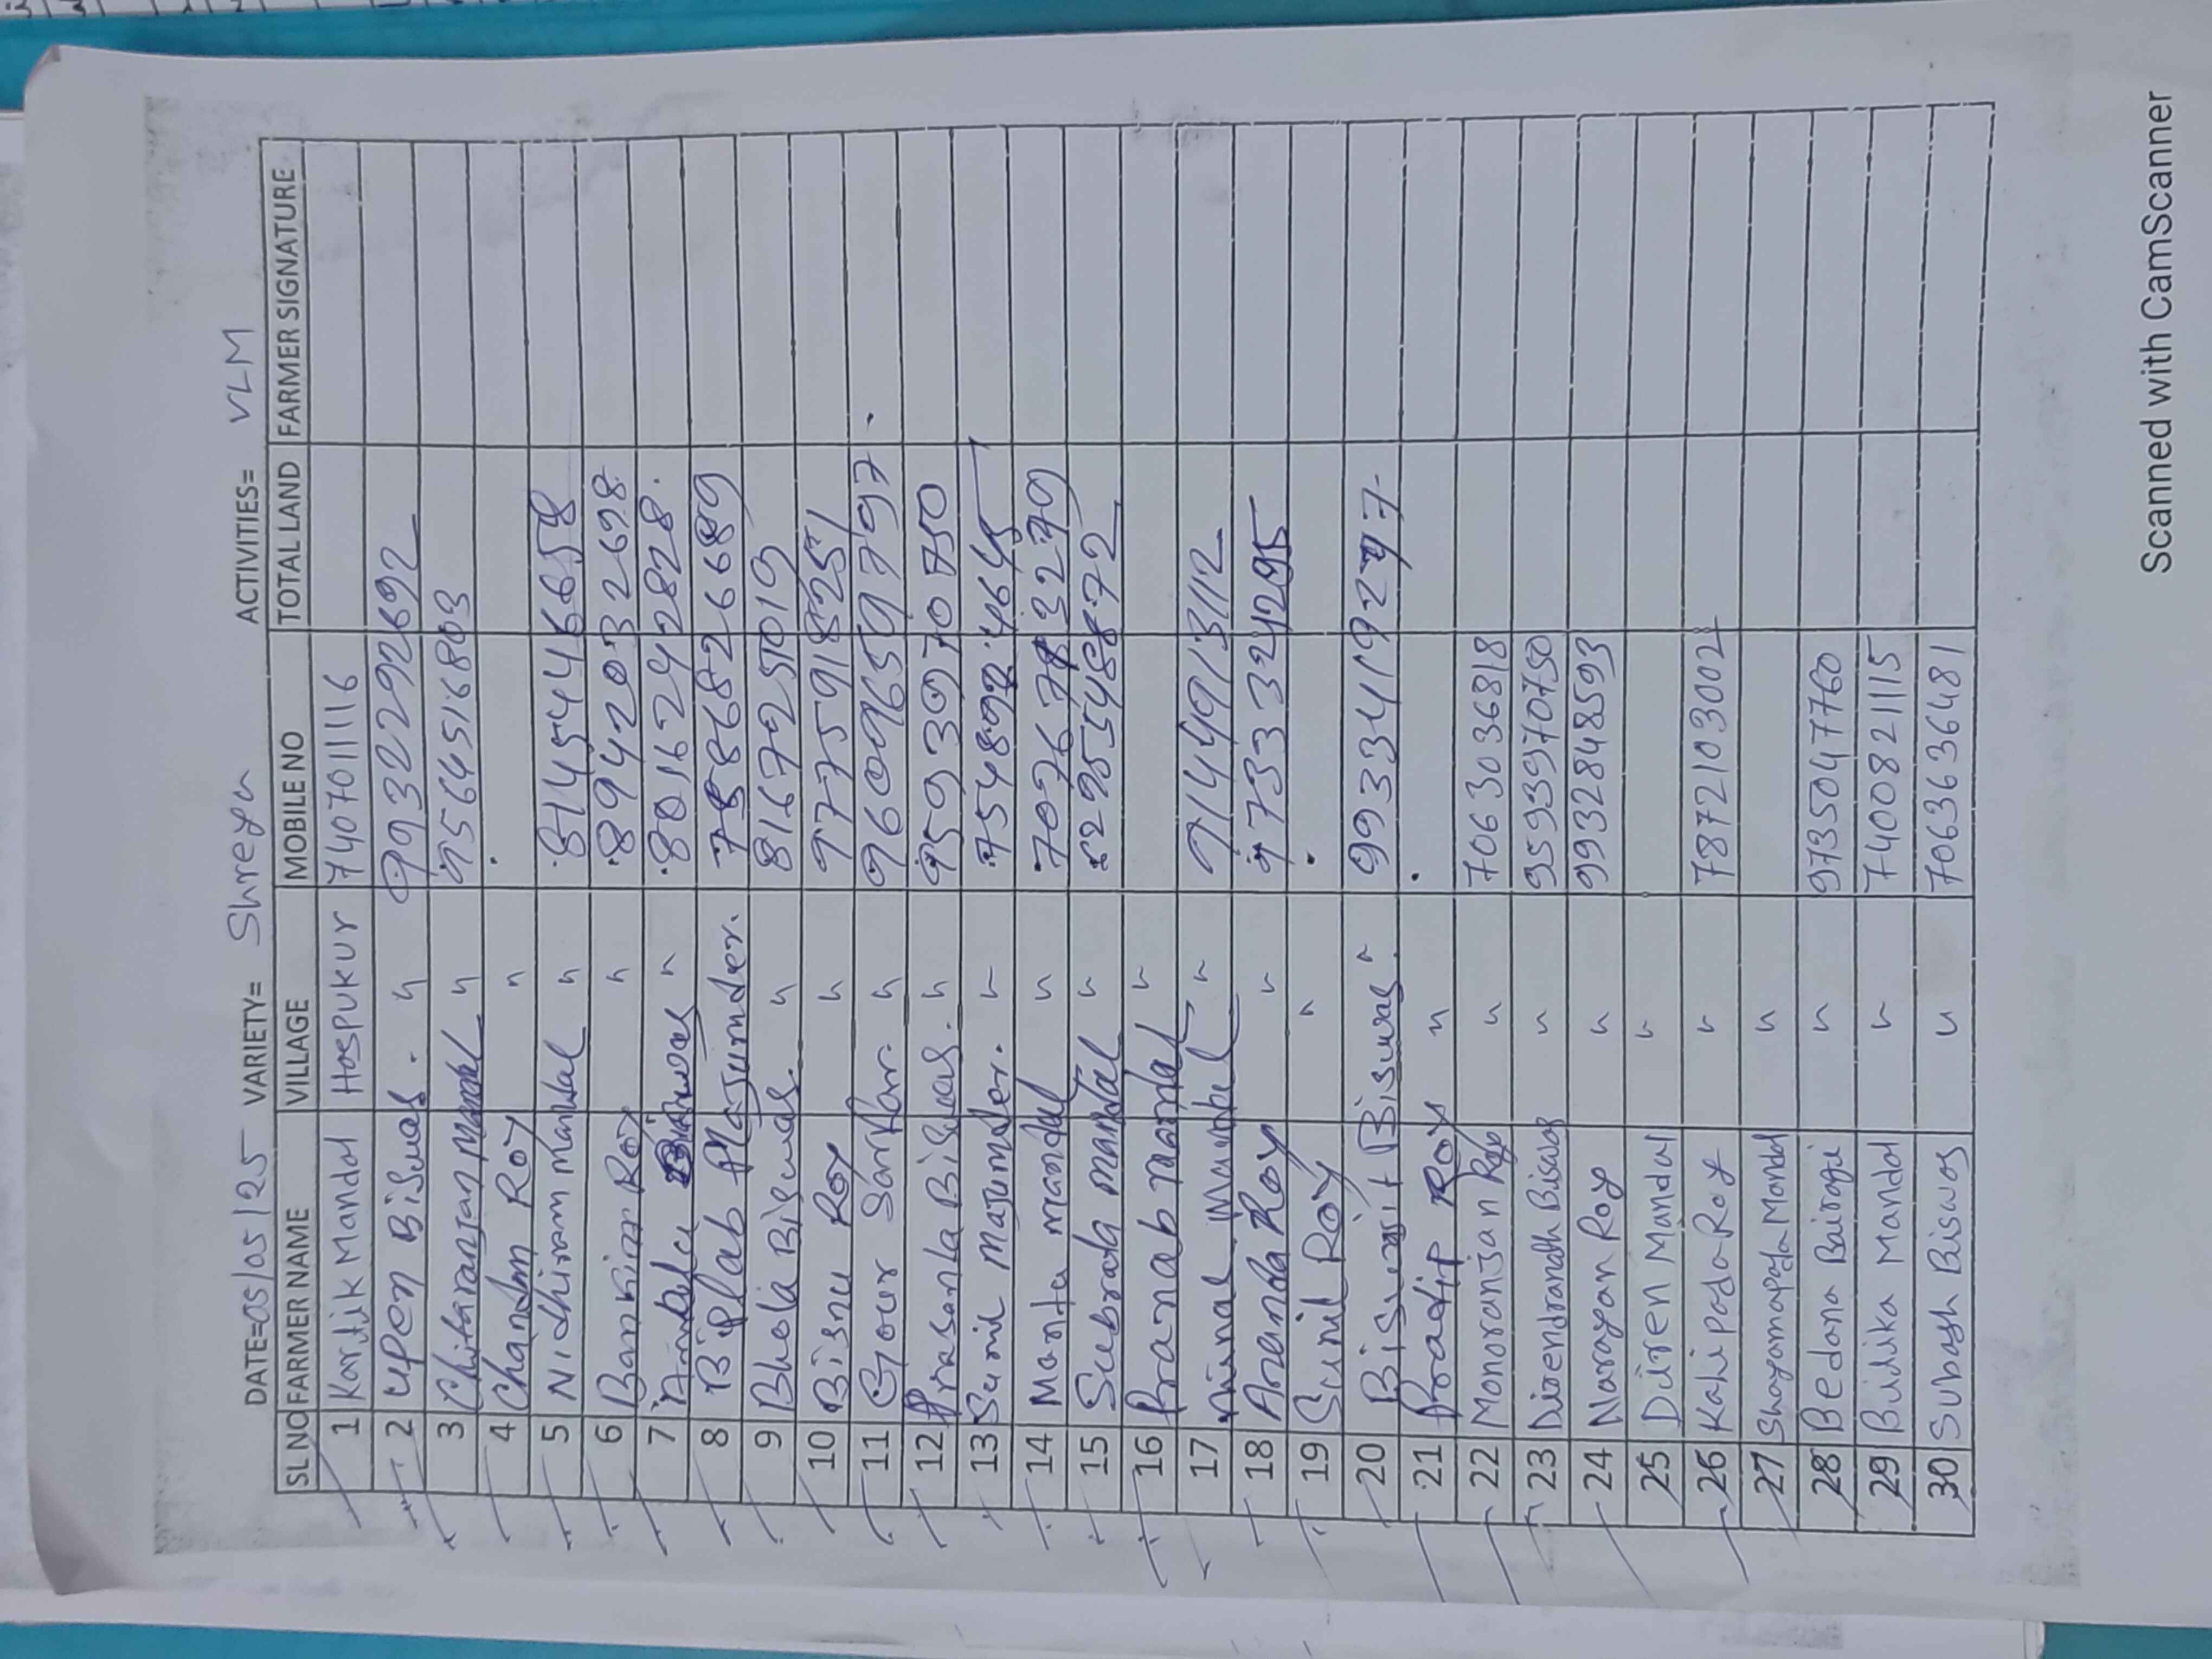 DATE=05/05/25 VARIETY= Shreya ACTIVITIES= VLM
SL NO FARMER NAME VILLAGE MOBILE NO TOTAL LAND FARMER SIGNATURE
1 Kartik Mandal Hospukur 7407011116
2 Upen Biswas. " 9932292692
3 Chitaranjan Mandal " 9564516803
4 Chandan Roy "
5 Nidhiram Mandal " 8145446658
6 Bankim Roy " 8942032698
7 Biswas " 8016242828
8 Biplab Majumder. 7586826689
9 Bhola Biswas. " 8167251019
10 Bisnu Roy " 9775918251
11 Gour Sarkar. " 9609659797
12 Prasanta Biswas. " 9593970750
13 Sunil Majumder. " 7548924645
14 Manta mandal " 7076783299
15 Subrata mandal "
16 Pranab mandal "
17 Mrinal Mandal " 9144913112
18 Ananda Roy " 9733324295
19 Sunil Roy "
20 Biswajit Biswas " 9933419277
21 Pradip Roy "
22 Monoranjan Roy " 7063036818
23 Direndranath Biswas " 9593970750
24 Narayan Roy " 9932848593
25 Diren Mandal "
26 Kalipada Roy " 7872103002
27 Shayamapada Mandal "
28 Bedana Bairagi " 9735047760
29 Bitika Mandal " 7400821115
30 Subash Biswas " 7063636481
Scanned with CamScanner